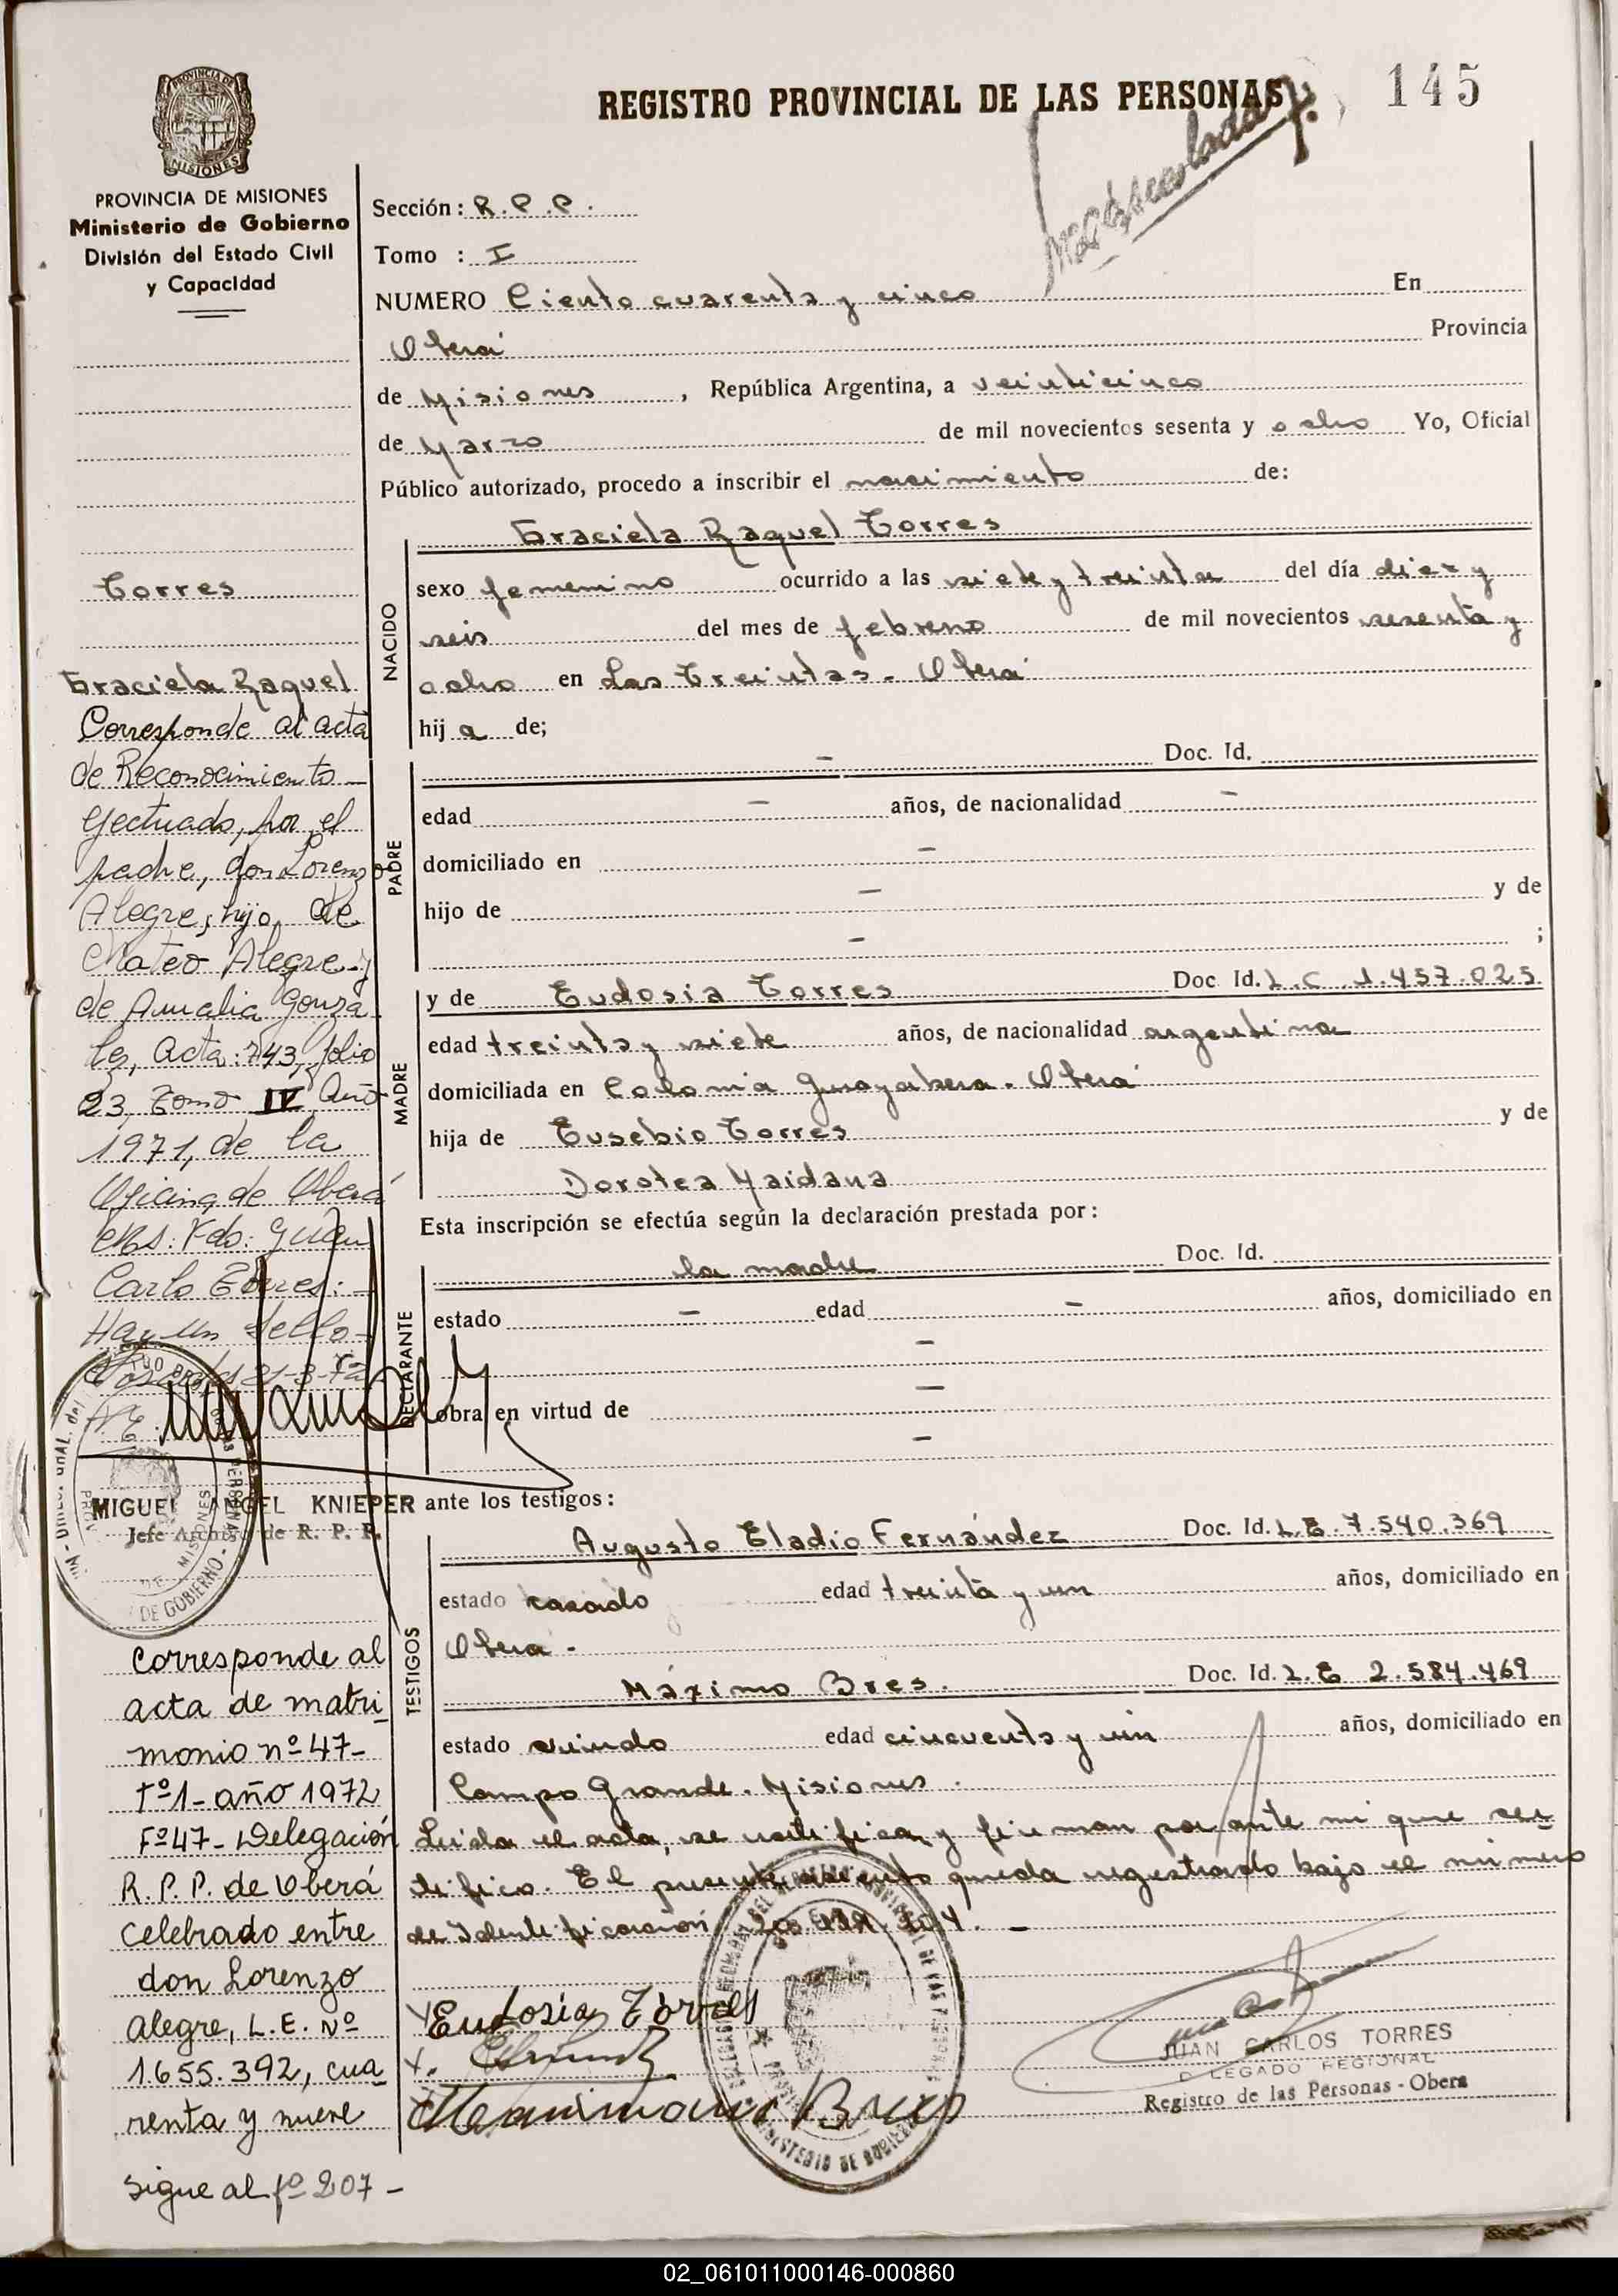 REGISTRO PROVINCIAL DE LAS PERSONAS
145
PROVINCIA DE MISIONES
Ministerio de Gobierno
División del Estado Civil
y Capacidad
Sección: R.P.P.
Tomo : I
NUMERO Ciento cuarenta y cinco En
Oberá Provincia
de Misiones , República Argentina, a veinticinco
de Marzo de mil novecientos sesenta y ocho Yo, Oficial
Público autorizado, procedo a inscribir el nacimiento de:
NACIDO
Graciela Raquel Torres
sexo femenino ocurrido a las siete y treinta del día diez y
seis del mes de febrero de mil novecientos sesenta y
ocho en Las Treintas - Oberá
hij a de;
PADRE
- Doc. Id.
edad - años, de nacionalidad -
domiciliado en -
hijo de - y de
- ;
MADRE
y de Eudosia Torres Doc Id. L.C 1.457.025
edad treinta y siete años, de nacionalidad argentina
domiciliada en Colonia Guayabera - Oberá
hija de Eusebio Torres y de
Dorotea Maidana
Esta inscripción se efectúa según la declaración prestada por:
DECLARANTE
la madre Doc. Id.
estado - edad - años, domiciliado en
-
-
obra en virtud de
-
ante los testigos:
TESTIGOS
Augusto Eladio Fernández Doc. Id. L.E. 7.540.369
estado casado edad treinta y un años, domiciliado en
Oberá -
Máximo Bres. Doc. Id. L.E 2.584.469
estado viudo edad cincuenta y un años, domiciliado en
Campo Grande - Misiones.
Leida el acta, se ratifican y firman por ante mi que cer-
tifico. El presente asiento queda registrado bajo el número
de Identificación
Eudosia Torres
Bres
JUAN CARLOS TORRES
DELEGADO REGIONAL
Registro de las Personas - Oberá
Torres
Graciela Raquel
Corresponde al acta
de Reconocimiento
efectuado, por el
padre, don Lorenzo
Alegre, hijo de
Mateo Alegre y
de Amalia Gonza
lez, Acta: 743, folio
23, Tomo IV Año
1971, de la
Oficina de Oberá
Fdo: Juan
Carlo Torres: -
Hay un Sello -
Posadas 21-3-72
MIGUEL ANGEL KNIEPER
Jefe Archivo de R. P. P.
DE GOBIERNO
Corresponde al
acta de matri
monio nº 47-
Tº 1- año 1972
Fº 47- Delegación
R.P.P. de Oberá
celebrado entre
don Lorenzo
Alegre, L.E. Nº
1.655.392, cua
renta y nueve
sigue al fº 207 -
02_061011000146-000860